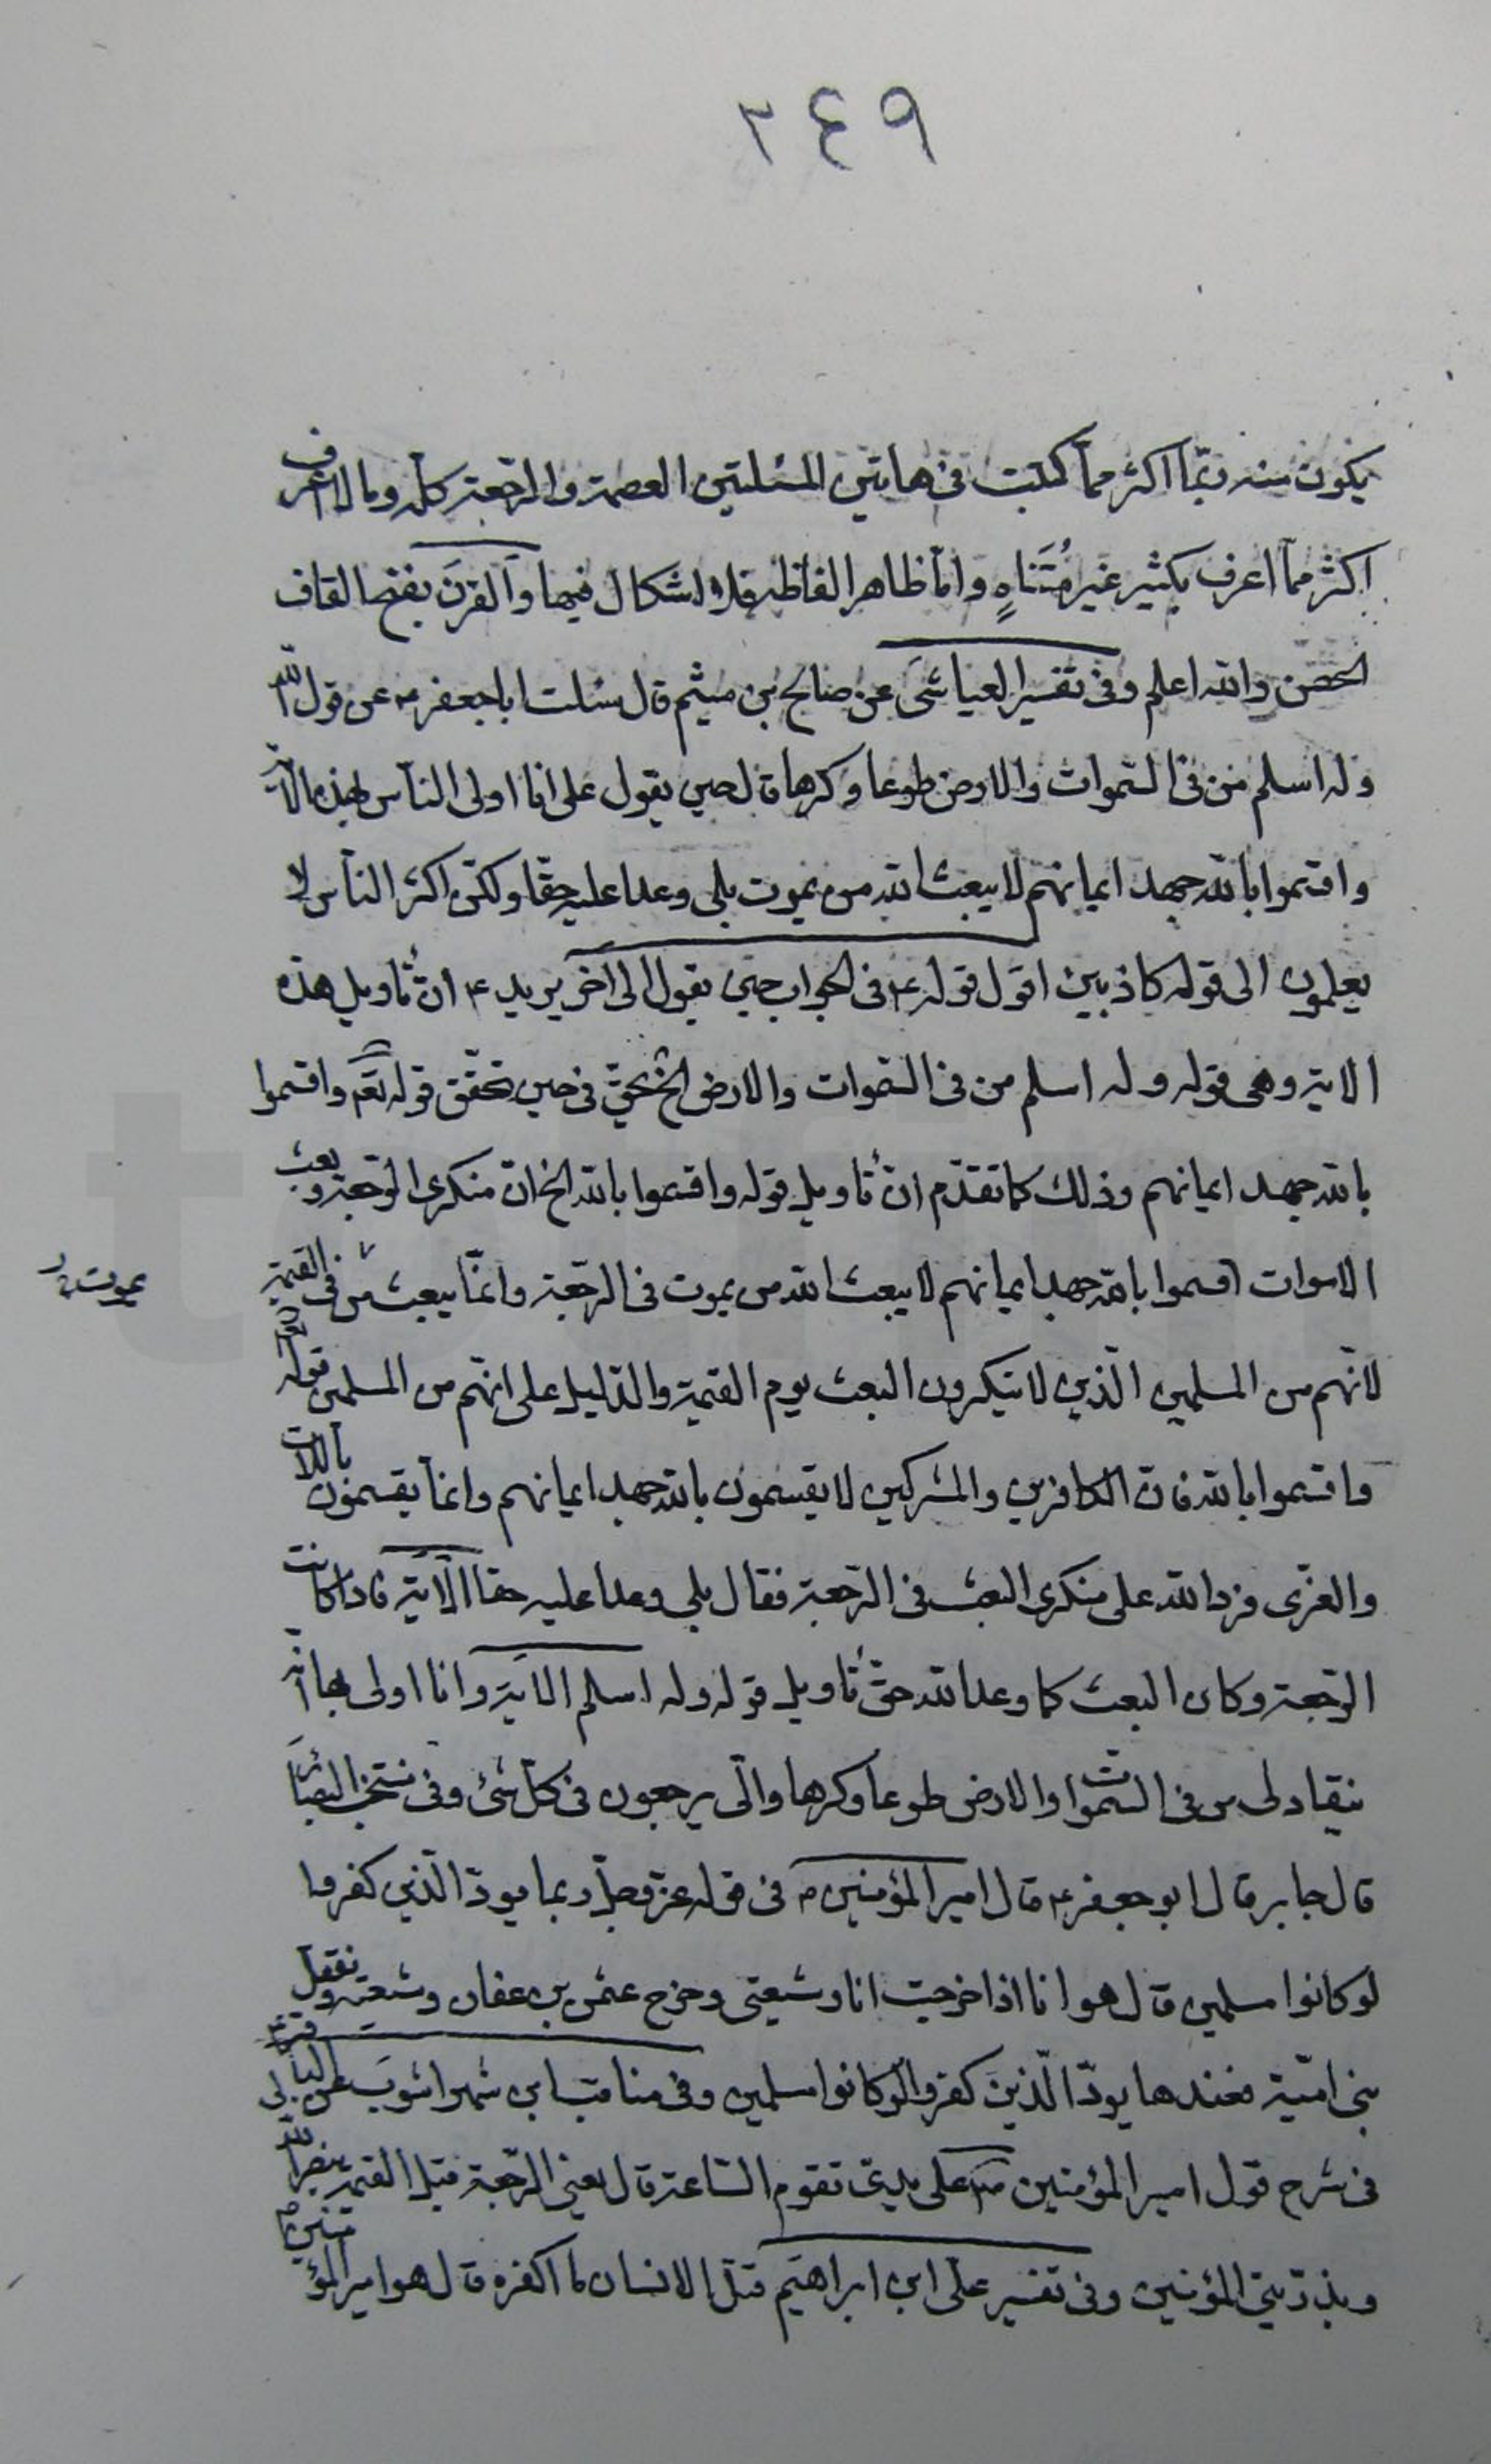 ٢٤٩
يكون منه ربّما اكثر ممّا كتبت فى هاتين المسئلتين العصمة والرّجعة كلّه وما لا اعرف
اكثر ممّا اعرف بكثير غير مُتَناهٍ وامّا ظاهر الفاظه فلا اشكال فيها والقرنَ بفتح القاف
الحصن والله اعلم وفى تفسير العياشى عن صالح بن ميثم قال سئلت اباجعفر ع عن قول الله
وله اسلم من فى السّموات والارض طوعا وكرها قال حين يقول علىّ انا اولى النّاس بهذه الآية
واقسموا بالله جهد ايمانهم لا يبعث الله من يموت بلى وعدا عليه حقّا ولكنّ اكثر النّاس لا
يعلمون الى قوله كاذبين اقول قوله ع فى الجواب حين يقول الى آخر يريد ع انّ تأويل هذه
الاية وهى قوله وله اسلم من فى السّموات والارض الخ يحقّ فى حين تحقّق قوله تعم واقسموا
بالله جهد ايمانهم وذلك كما تقدّم انّ تأويل قوله واقسموا بالله الخ انّ منكرى الرّجعة وبعث
الاموات اقسموا بالله جهد ايمانهم لا يبعث الله من يموت فى الرّجعة وانّما يبعث من فى القيمة
يموت
لانّهم من المسلمين الّذين لا ينكرون البعث يوم القيمة والدّليل على انّهم من المسلمين قوله تع
واقسموا بالله فانّ الكافرين والمشركين لا يقسمون بالله جهد ايمانهم وانّما يقسمون باللات
والعزّى فردّ الله على منكرى البعث فى الرّجعة فقال بلى وعدا عليه حقا الآية فاذا كانت
الرّجعة وكان البعث كما وعد الله حقّ تأويل قوله وله اسلم الاية وانا اولى بها انّه
ينقاد لى من فى السّموات والارض طوعا وكرها والىّ يرجعون فى كلّ شئ وفى منتخب البصائر
قال جابر قال ابو جعفر ع قال امير المؤمنين ع فى قوله عزّ وجلّ ربما يودّ الّذين كفروا
لو كانوا مسلمين قال هو انا اذا خرجت انا وشيعتى وخرج عثمن بن عفان وشيعته ونقتل
بنى اميّة فعندها يودّ الّذين كفروا لو كانوا مسلمين وفى مناقب ابن شهراشوب عن الباقر ع
فى شرح قول امير المؤمنين ع على يدىّ تقوم السّاعة قال يعنى الرّجعة قبل القيمة ينصر الله بى
وبذرّيتى المؤمنين وفى تفسير علىّ ابن ابراهيم قتل الانسان ما اكفره قال هو امير المؤمنين ع